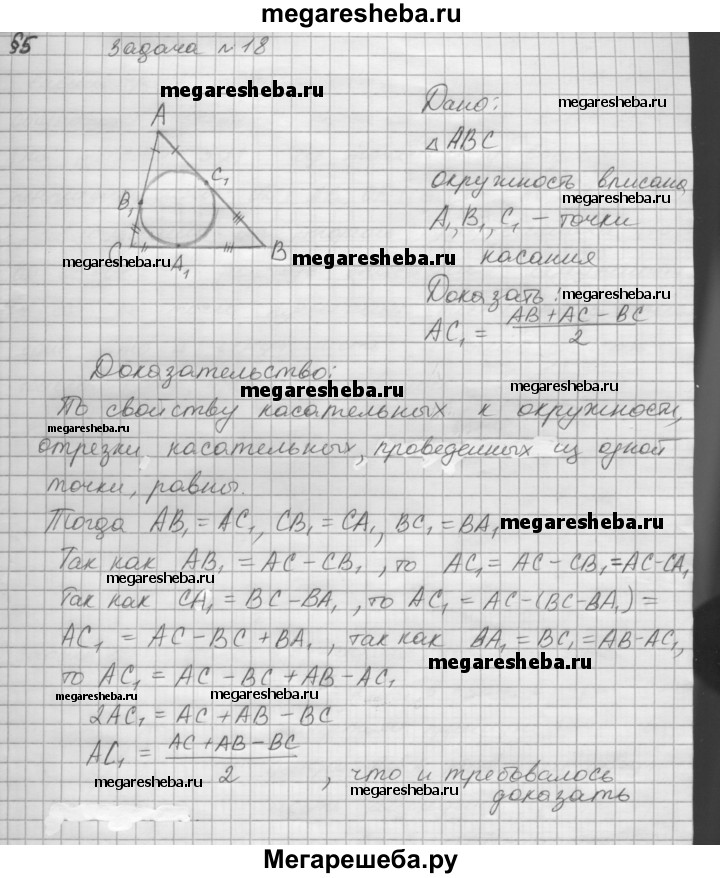 megaresheba.ru
§5 Задача №18
megaresheba.ru
Дано:
megaresheba.ru
△ABC
окружность вписана,
A₁, B₁, C₁ – точки
касания
A
C₁
B₁
C
A₁
B
megaresheba.ru
megaresheba.ru
Доказать:
megaresheba.ru
AC₁ = (AB + AC – BC)/2
Доказательство:
megaresheba.ru
megaresheba.ru
По свойству касательных к окружности,
megaresheba.ru
отрезки касательных, проведенных из одной
точки, равны.
Тогда AB₁ = AC₁, CB₁ = CA₁, BC₁ = BA₁
megaresheba.ru
Так как AB₁ = AC – CB₁, то AC₁ = AC – CB₁ = AC – CA₁
megaresheba.ru
Так как CA₁ = BC – BA₁, то AC₁ = AC – (BC – BA₁) =
AC₁ = AC – BC + BA₁, так как BA₁ = BC₁ = AB – AC₁,
megaresheba.ru
то AC₁ = AC – BC + AB – AC₁
megaresheba.ru
megaresheba.ru
2AC₁ = AC + AB – BC
AC₁ = (AC + AB – BC)/2, что и требовалось
megaresheba.ru
megaresheba.ru
доказать
Мегарешеба.ру